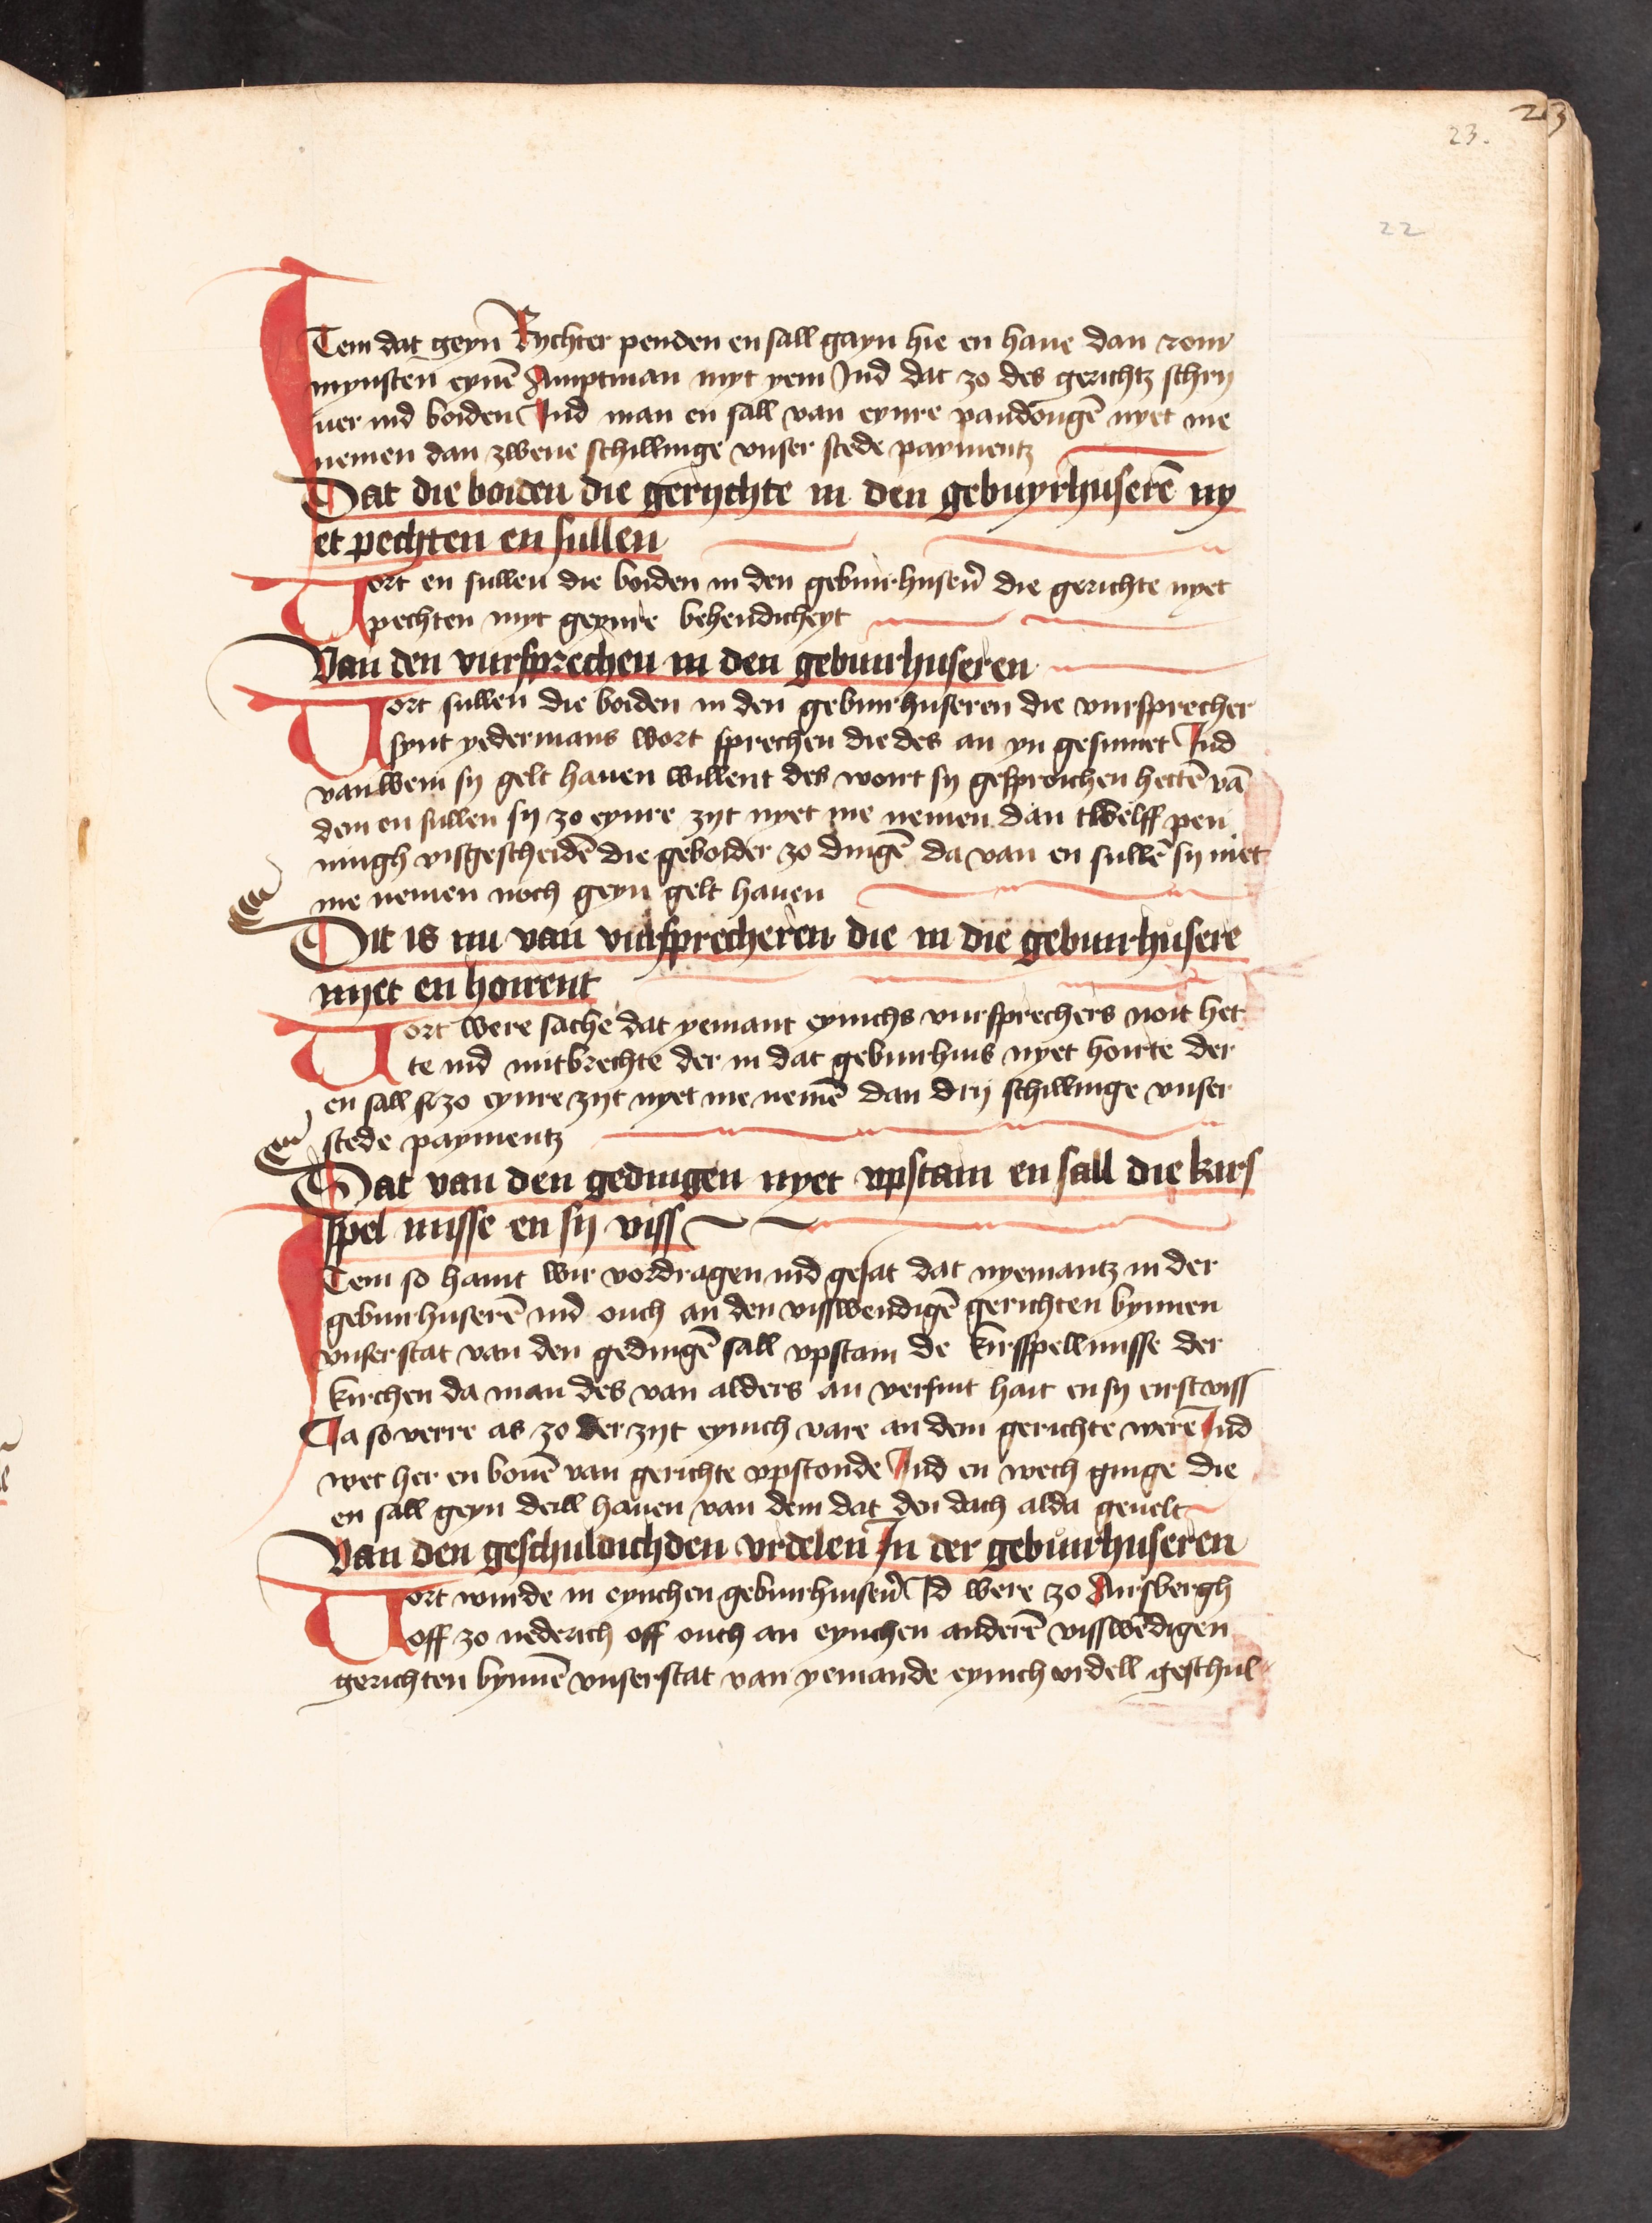 23
23.
22
Item dat geyn Rychter penden en sall gayn hie en haue dan zom
mynsten eynē Amptman myt yem Ind dat zo des gerichtz schrij
uer ind boiden Ind man en sall van eynre pandongē nyet me
nemen dan zwene schillinge vnser stede paymentz
Dat die boiden die gerijchte in den gebuyrhuserē ny
et pechten en sullen
Vort en sullen die boiden in den gebuirhuserē die gerichte nyet
pechten myt geynre behendicheyt
Van den vursprechen in den gebuirhuseren
Vort sullen die boiden in den gebuirhuseren die vursprecher
synt yedermans wort sprechen die des an yn gesinnet Ind
van wem sij gelt hauen willent des wort sij gesproichen hettē vā
dem en sullen sij zo eynre zijt nyet me nemen dan twelff pen
ningh vissgescheidē die geboider zo dingē da van en sullē sij niet
me nemen noch geyn gelt hauen
Dit is nu van vursprecheren die in die gebuirhusere
nyet en hoirent
Vort were sache dat yemant eynichs vursprechers noit het
te ind mitbrechte der in dat gebuirhuis nyet hoirte der
en sall zo eynre zijt nyet me nemē dan drij schillinge vnser
stede paymentz
Dat van den gedingen nyet vpstain en sall die kirs
spel misse en sij viss
Item so haint wir vordragen ind gesat dat nyemantz in der
gebuirhuserē ind ouch an den visswendigē gerichten bynnen
vnser stat van den gedingē sall vpstain de kirsspellmisse der
kirchen da man des van alders an versint hait en sij eirst viss
Ja so verre as zo der zijt eynich vare an dem gerichte were Ind
wer her en bouē van gerichte vpstonde Ind en wech ginge die
en sall geyn deill hauen van dem dat den dach alda geuelt
Van den geschuldichden vrdelen In der gebuirhuseren
Vort wurde in eynchen gebuirhuserē Id were zo Airsbergh
off zo nederich off ouch an eynchen anderē visswēdigen
gerichten bynnē vnser stat van yemande eynich vrdell geschul